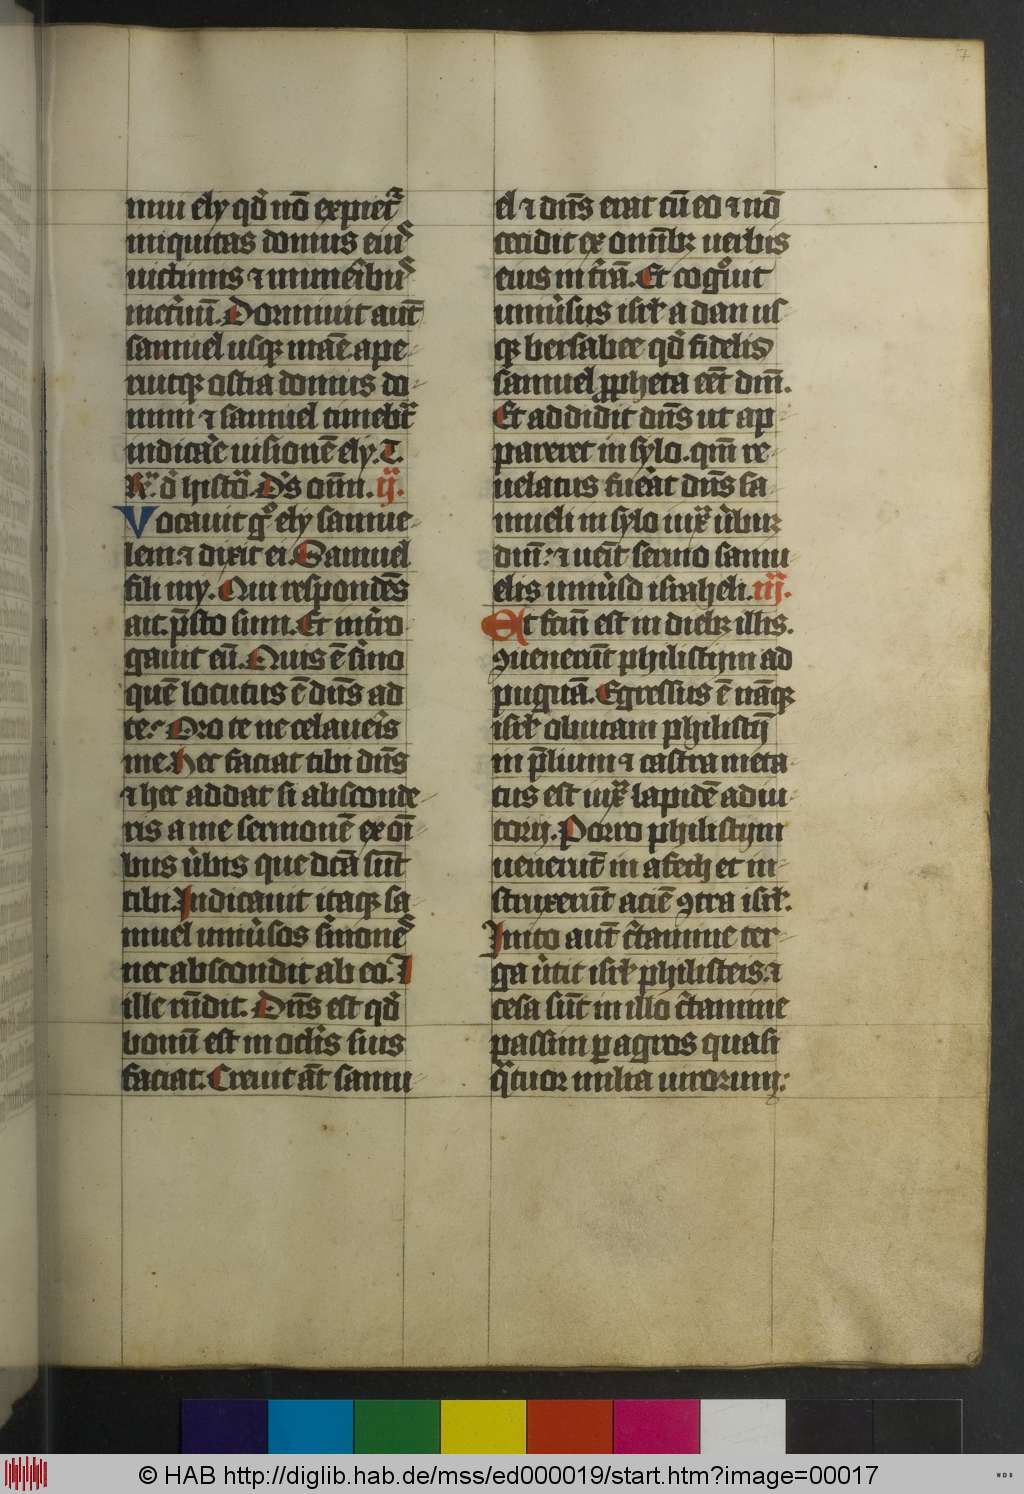 7
mui ely qđ nō expiet᷑
iniquitas domus eiuꝰ
uictimis ⁊ munerībuꝰ
inet̄nū. Dormiuit aut̄
samuel usqꝫ mane ape-
ruitqꝫ ostia domus do-
mini ⁊ samuel timebt᷑
indicare uisionē ely. T.
R̄. ō histō. Ds̄ om̄. ij.
Vocauit gͦ ely samue-
lem: ⁊ dixit ei. Samuel
fili my. Qui respondēs
ait. p̄sto sum. Et int̄ro
gauit eū. Quis ē s̄mo
quē locutus ē dn̄s ad
te: Oro te ne celaueris
me. hec faciat tibi dn̄s
⁊ hec addat si absconde-
ris a me sermonē ex oī-
bus ūbis que dcā sūt
tibi. Indicauit itaqꝫ sa-
muel uniūsos s̄moneꝰ
nec abscondit ab eo. I
ille rn̄dit. Dn̄s est qđ
bonū est in oclīs suis
faciat. Creuit āt samu-
el ⁊ dn̄s erat cū eo ⁊ nō
cecidit ex omībꝫ uerbis
eius in t̄rā. Et cogͦuit
uniūsus isrł a dan us-
qꝫ bersabee qđ fidelis
samuel ꝓpheta eēt dn̄i.
Et addidit dn̄s ut ap-
pareret in sylo. qm̄ re-
uelatus fuerat dn̄s sa-
mueli in sylo iuxᷓ ūbuꝫ
dn̄i: ⁊ ueīt sermo samu-
elis uniūso israheli. iij.
Et fcm̄ est in diebꝫ illis.
ꝯueneruīt philistijm ad
pugnā. Egressus ē nāqꝫ
isrł obuiam philistijm̄
in p̄lium ⁊ castra meta-
tus est iuxᷓ lapidē adiu-
torij. Porro philistijm
ueneruīt in afech et in-
struxeruīt aciē ꝯtra isrł.
Inito aut̄ c̄tamine ter-
ga ūtit isrł philisteis. ⁊
cesa sūt in illo c̄tamine
passim ꝑ agros quasi
qᷓtuor milia uirorum:
© HAB http://diglib.hab.de/mss/ed000019/start.htm?image=00017